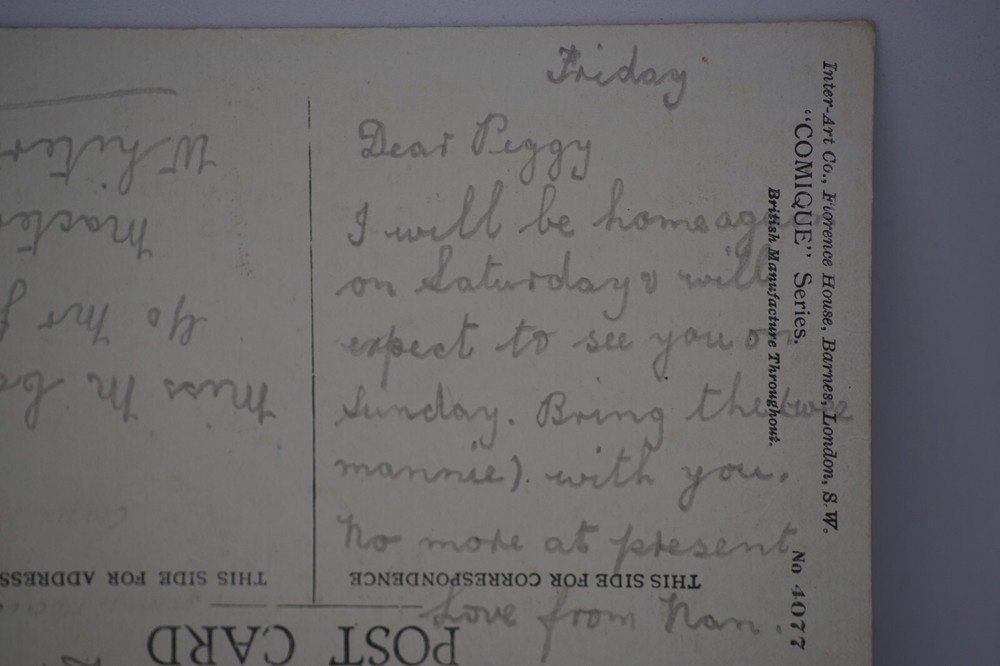 Friday
Dear Peggy
I will be home again
on Saturday & will
expect to see you on
Sunday. Bring the wee
mannie) with you.
No more at present
Love from Nan.
Inter-Art Co., Florence House, Barnes, London, S.W.
"COMIQUE" Series.
British Manufacture Throughout.
No 4077
POST CARD
THIS SIDE FOR CORRESPONDENCE
THIS SIDE FOR ADDRESS
Miss M
Go Mr